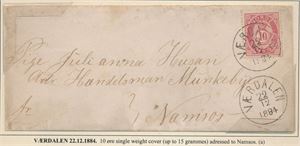 VÆRDALEN
22
12
1884
Pige Julianna Husan
Adr Handelsman Munkeby
fr
Namsos
VÆRDALEN 22.12.1884. 10 øre single weight cover (up to 15 grammes) adressed to Namsos. (a)